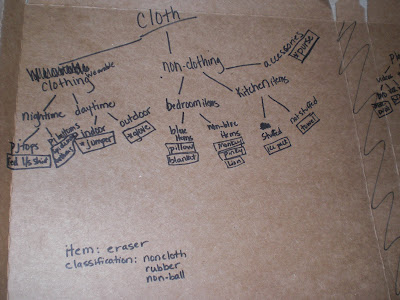 cloth
wearable
clothing
non-clothing
accessories
*purse
nighttime
daytime
bedroom items
kitchen items
pj tops
pj bottoms
indoor
*jumper
outdoor
*glove
blue
items
pillow
blanket
non-blue
items
monkey
pinky
lion
stuffed
ice pack
not stuffed
towel
item: eraser
classification: noncloth
rubber
non-ball